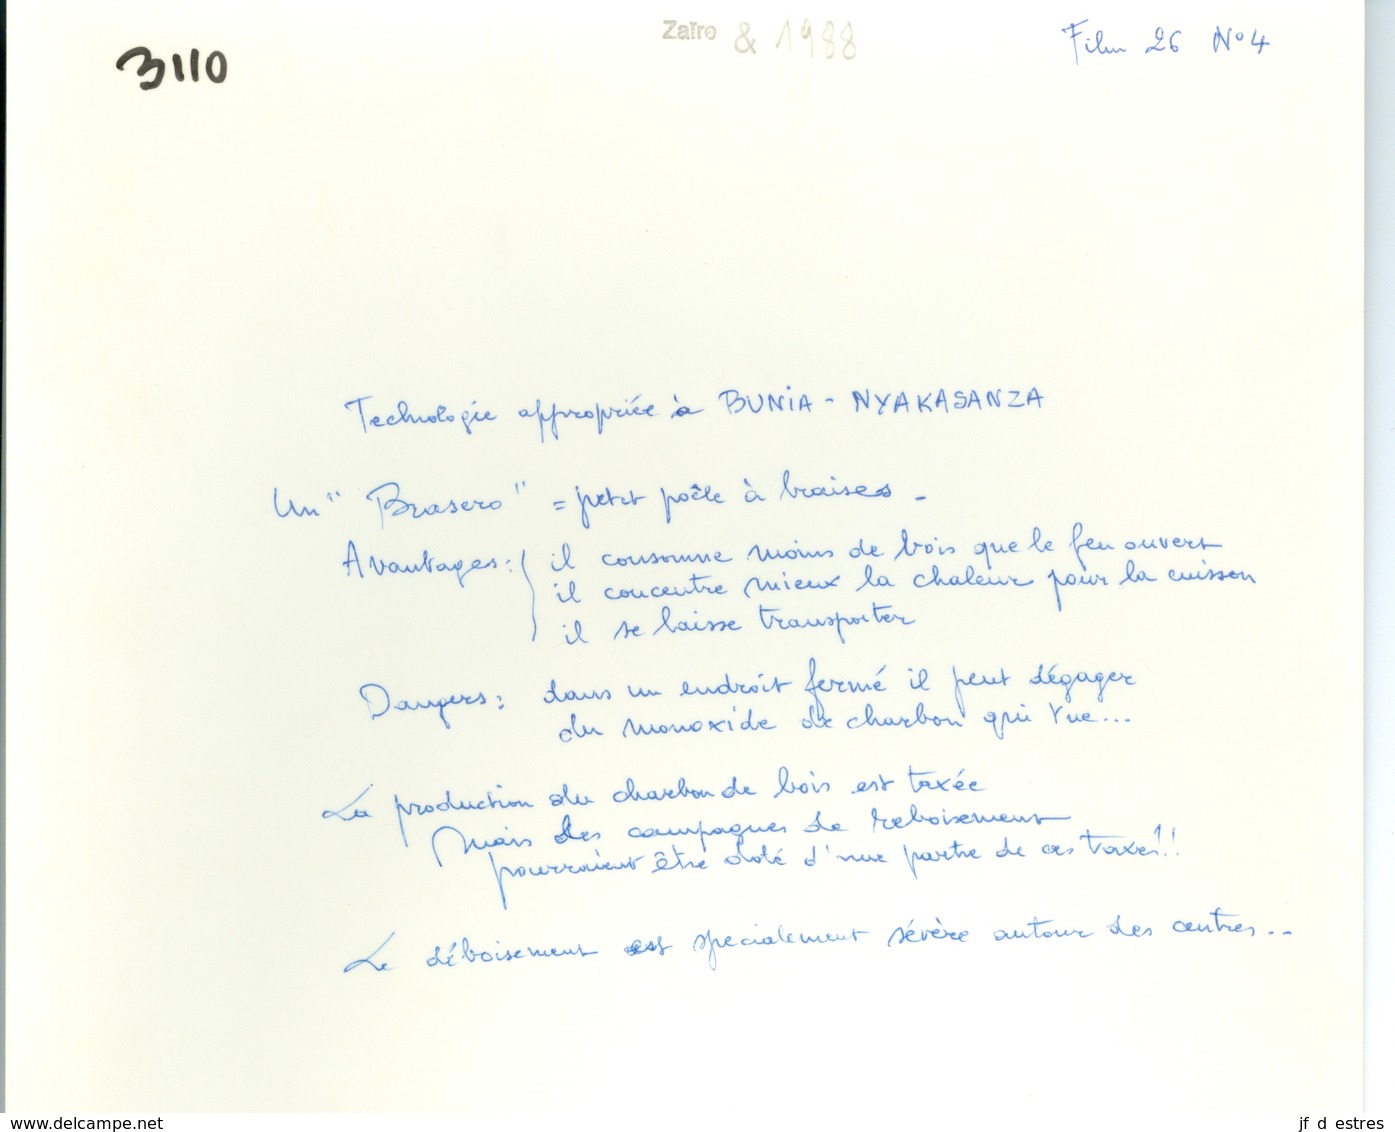 3110
Zaïre & 1988
Film 26 N° 4
Technologie appropriée à BUNIA - NYAKASANZA
Un "Brasero" = petit poêle à braises -
Avantages: il consomme moins de bois que le feu ouvert
il concentre mieux la chaleur pour la cuisson
il se laisse transporter
Dangers: dans un endroit fermé il peut dégager
du monoxide de charbon qui tue...
La production du charbon de bois est taxée
Mais des campagnes de reboisement
pourraient être doté d'une partie de ces taxes!!
Le déboisement est specialement sévère autour des centres...
www.delcampe.net
jf d estres